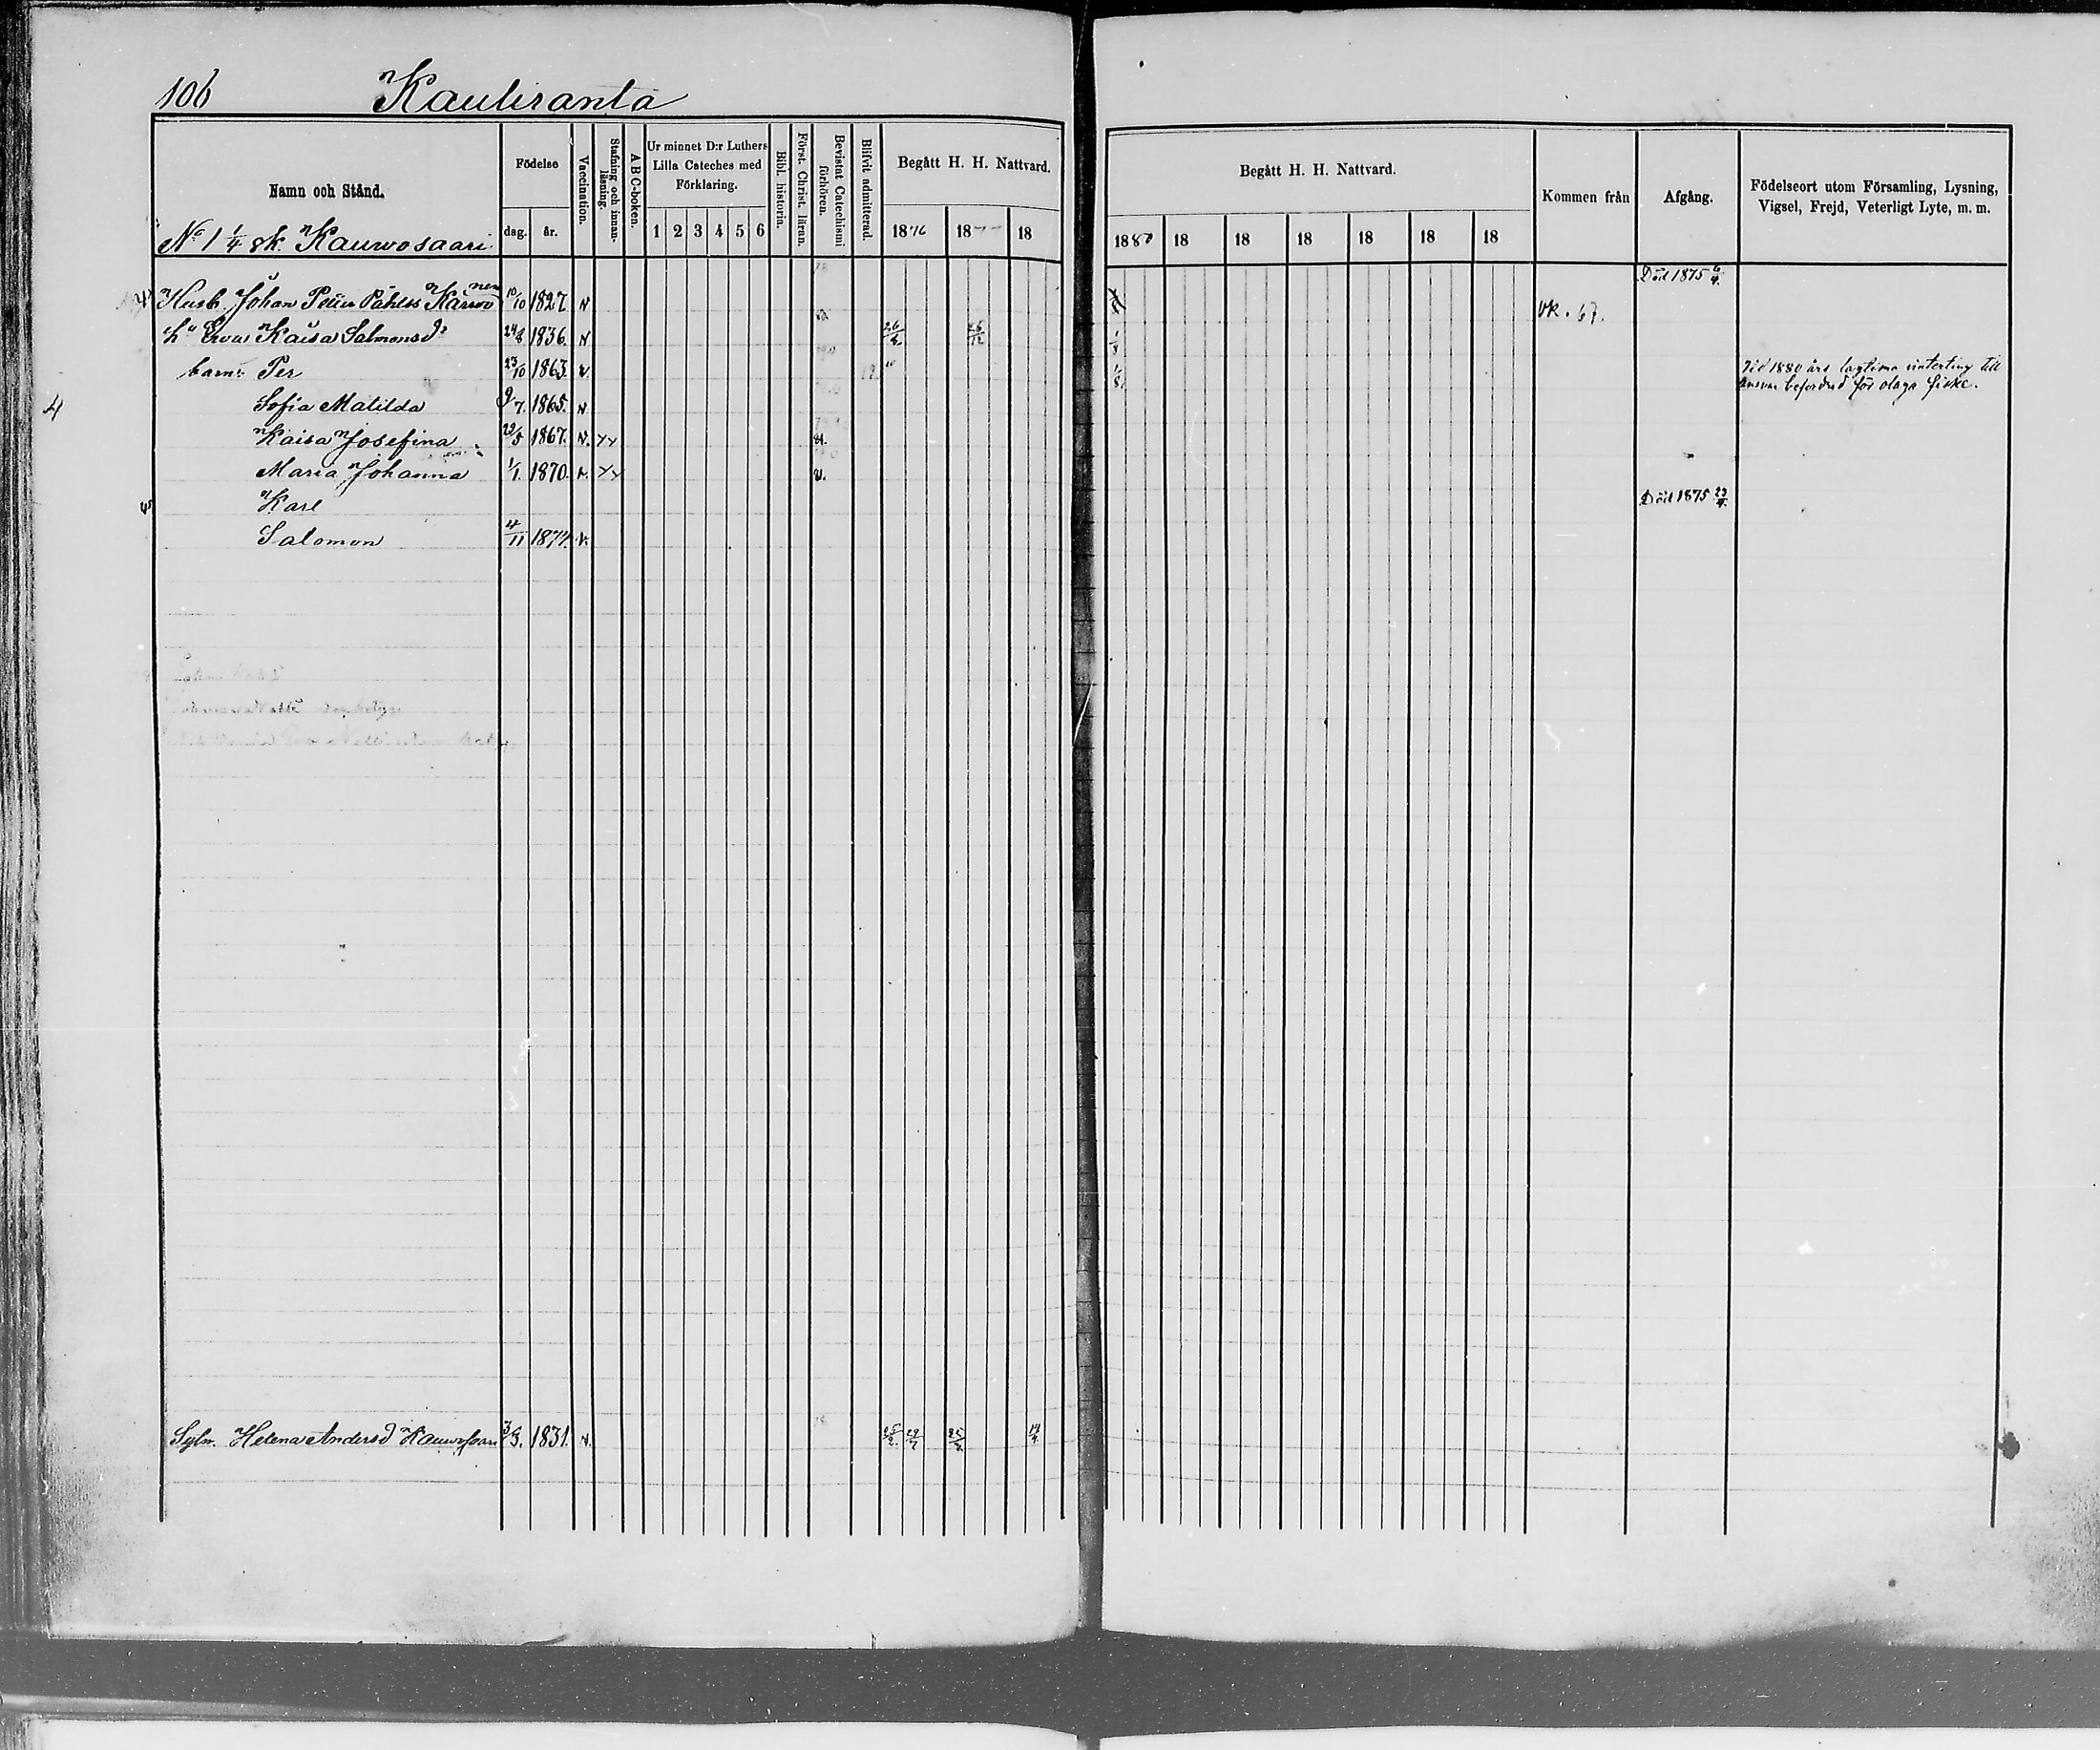 106 Kauliranta
Namn och Stånd.
Födelse
dag. år.
Vaccination.
Stafning och innan-
läsning.
ABC-boken.
Ur minnet D:r Luthers
Lilla Cateches med
Förklaring.
1 2 3 4 5 6
Bibl. historia.
Först. Christ. läran.
Bevistat Catechismi
förhören.
Blifvit admitterad.
Begått H. H. Nattvard.
1876 18 18
Begått H. H. Nattvard.
1880 18 18 18 18 18 18
Kommen från
Afgång.
Födelseort utom Församling, Lysning,
Vigsel, Frejd, Veterligt Lyte, m. m.
No 1 1/4 sk. Kauwosaari
Död 1875 6/4.
Husb. Johan Petter Påhlss Karwonen 10/10 1827 v. vk. 67.
h" Eva Kaisa Salmonsdr 24/8 1836. v. 1/8
barn: Per 23/10 1863. v. 1/8 Vid 1880 års lagtima vinterting till
ansvar befordrad för olaga fiske.
4 Sofia Matilda 9/7. 1865. v.
Kaisa Josefina 1867. v.
Maria Johanna 1/1. 1870. v. v.
Karl Död 1875 23/4.
Salomon 4/11 1874. v.
Helena Andersd Kauwosaari 1831. v.